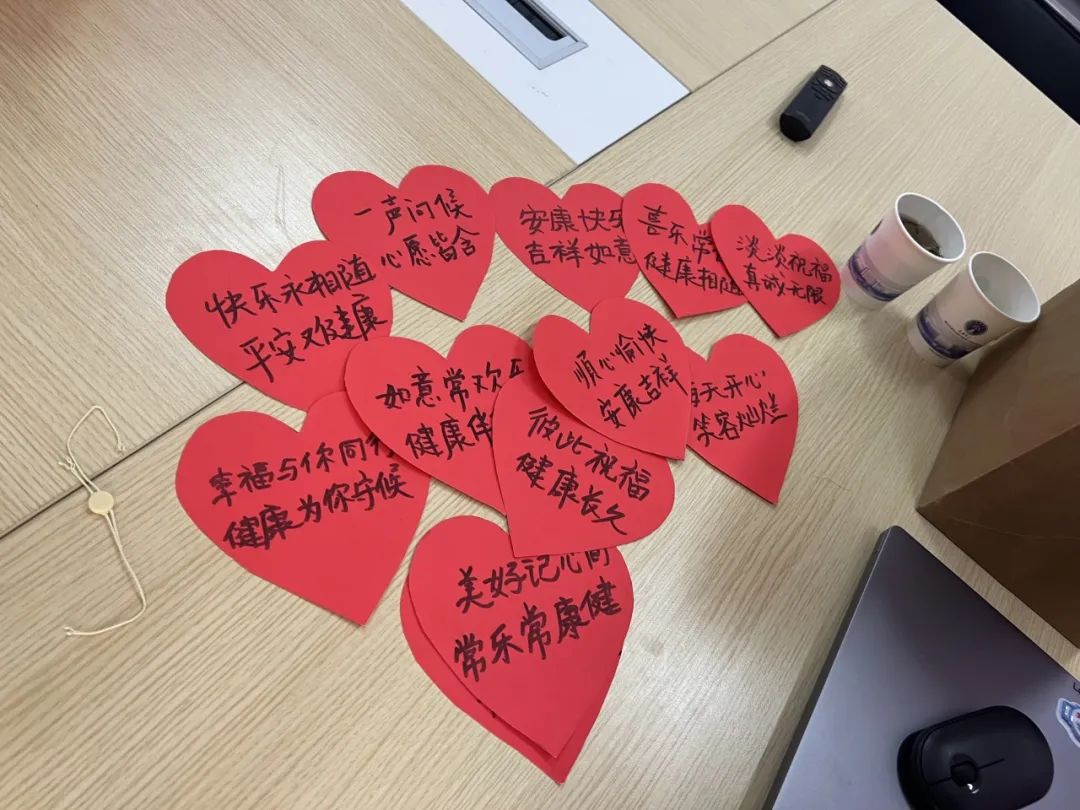 一声问候
心愿皆含
安康快乐
吉祥如意
喜乐常
健康相随
淡淡祝福
真诚无限
快乐永相随
平安又健康
如意常欢
健康伴
顺心愉快
安康吉祥
每天开心
笑容灿烂
彼此祝福
健康长久
幸福与你同
健康为你守候
美好记心间
常乐常康健